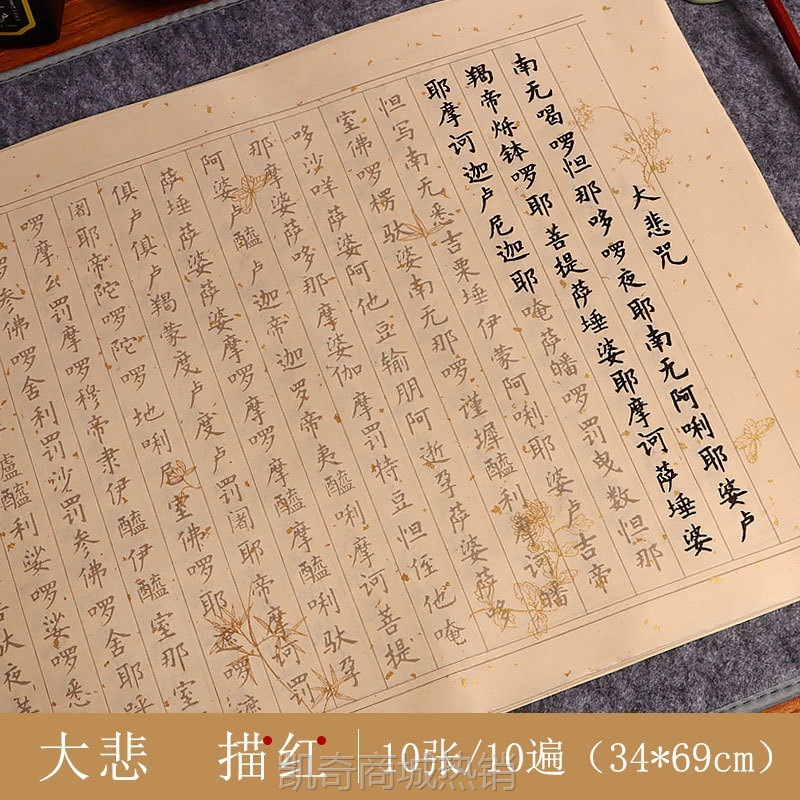 大悲咒
南无喝啰怛那哆啰夜耶南无阿唎耶婆卢
羯帝烁钵啰耶菩提萨埵婆耶摩诃萨埵婆
耶摩诃迦卢尼迦耶唵萨皤啰罚曳数怛那
怛写南无悉吉栗埵伊蒙阿唎耶婆卢吉帝
室佛啰楞驮婆南无那啰谨墀醯利摩诃皤
哆沙咩萨婆阿他豆输朋阿逝孕萨婆萨哆
那摩婆萨哆那摩婆伽摩罚特豆怛侄他唵
阿婆卢醯卢迦帝迦罗帝夷醯唎摩诃菩提
萨埵萨婆萨婆摩啰摩啰摩醯摩醯唎驮孕
俱卢俱卢羯蒙度卢度卢罚阇耶帝摩诃罚
阇耶帝陀啰陀啰地唎尼室佛啰耶遮啰遮
啰摩么罚摩啰穆帝隶伊醯伊醯室那室
参佛啰舍利罚沙罚参佛啰舍耶呼
嚧醯利娑啰娑啰悉
驮夜菩
大悲 描红 10张/10遍（34*69cm）
凯奇商城热销